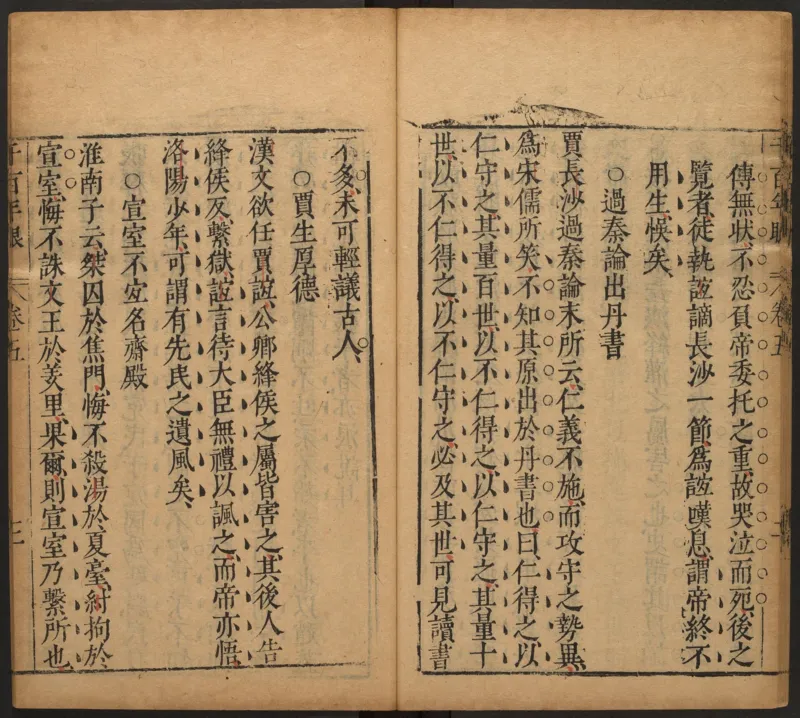 傳無狀不忍負帝委托之重故哭泣而死後之
覽者徒執誼謫長沙一節爲誼嘆息謂帝終不
用生悞矣
○過秦論出丹書
賈長沙過秦論末所云仁義不施而攻守之勢異
爲宋儒所笑不知其原出於丹書也曰仁得之以
仁守之其量百世以不仁得之以仁守之其量十
世以不仁得之以不仁守之必及其世可見讀書
不多未可輕議古人
○賈生厚德
漢文欲任賈誼公卿絳侯之屬皆害之其後人告
絳侯反繫獄誼言待大臣無禮以諷之而帝亦悟
洛陽少年可謂有先民之遺風矣
○宣室不宜名齋殿
淮南子云桀囚於焦門悔不殺湯於夏臺紂拘於
宣室悔不誅文王於羑里果爾則宣室乃繫所也
千百年眼
卷五